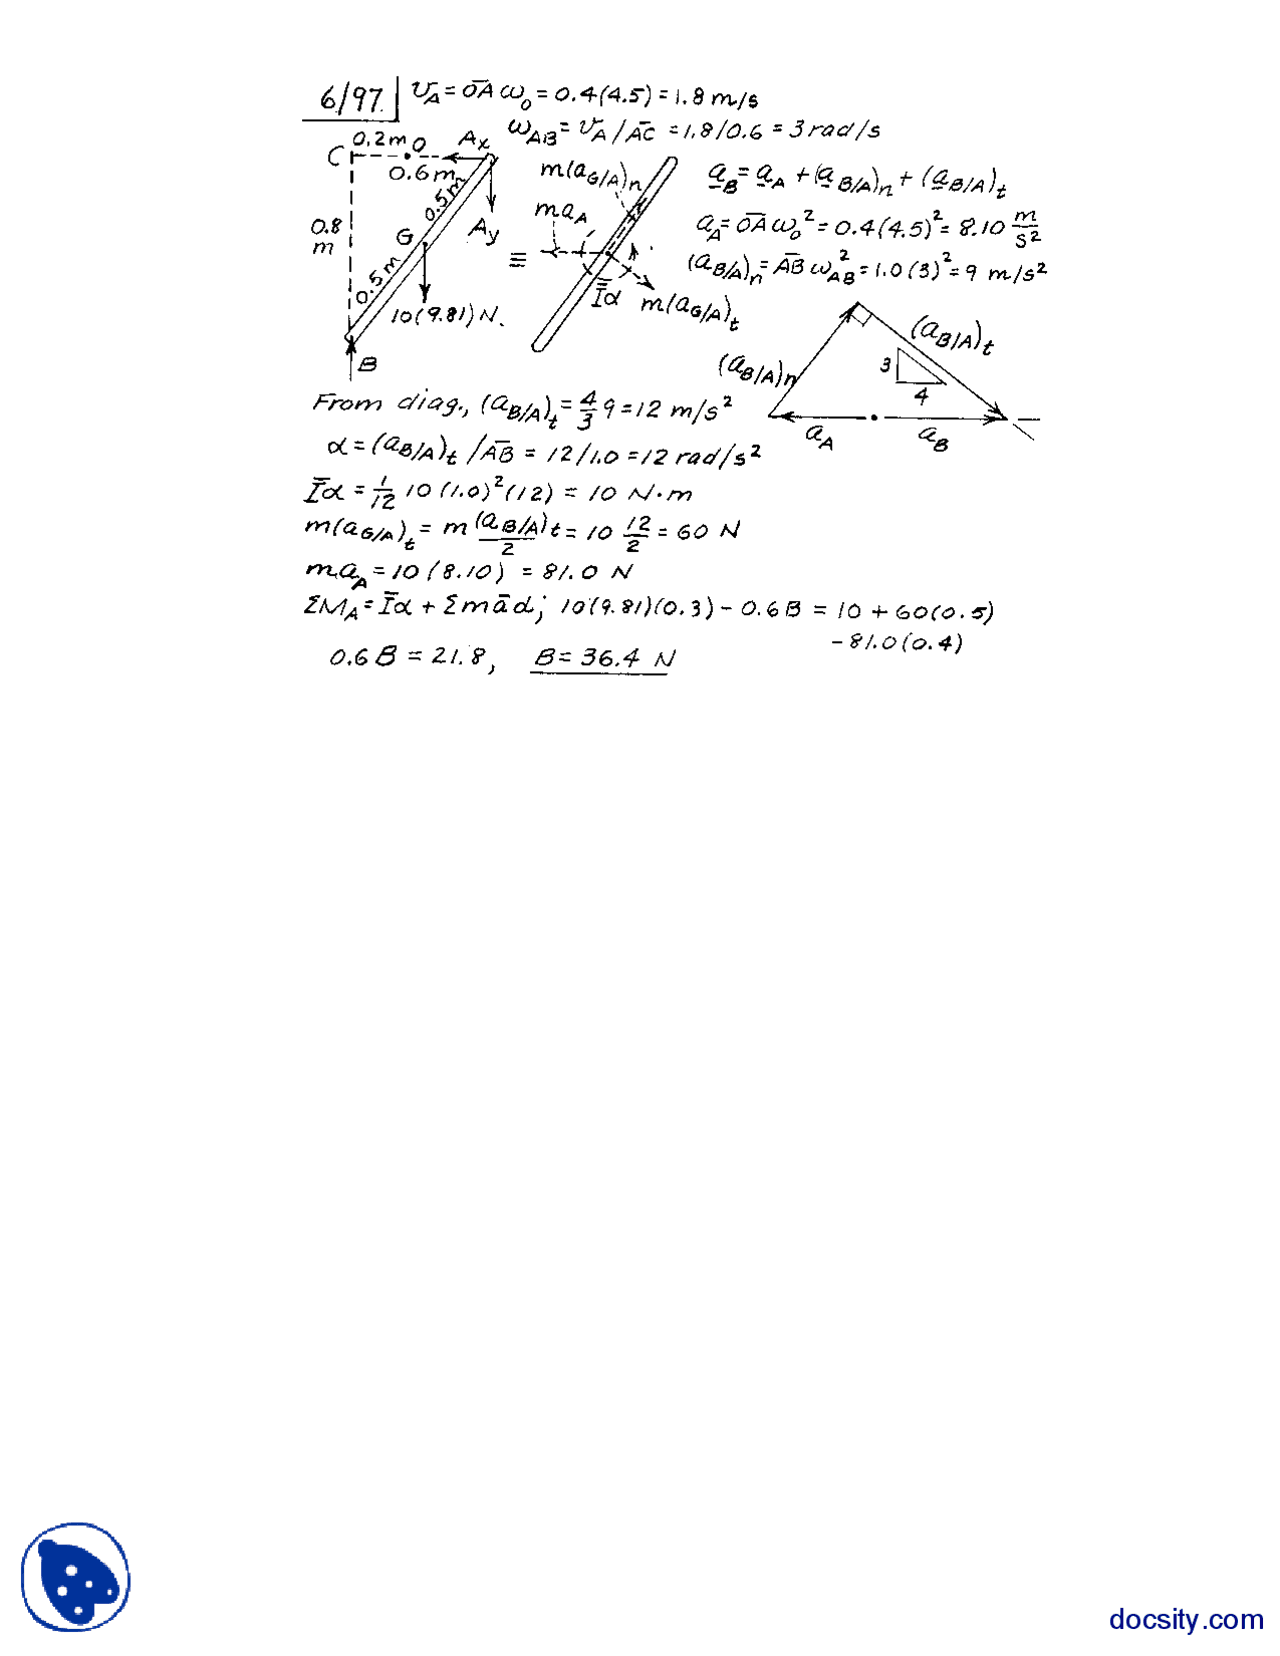 6/97. v_A = O̅A̅ ω_o = 0.4(4.5) = 1.8 m/s
ω_AB = v_A / A̅C̅ = 1.8/0.6 = 3 rad/s
C 0.2m O A_x
0.6m
0.5m
0.8
m
G
A_y
0.5m
10(9.81)N.
B
≡
m(a_G/A)_n
ma_A
I̅α
m(a_G/A)_t
a_B = a_A + (a_B/A)_n + (a_B/A)_t
a_A = O̅A̅ ω_o² = 0.4(4.5)² = 8.10 m/s²
(a_B/A)_n = A̅B̅ ω_AB² = 1.0(3)² = 9 m/s²
(a_B/A)_n
(a_B/A)_t
3
4
a_A a_B
From diag., (a_B/A)_t = 4/3 9 = 12 m/s²
α = (a_B/A)_t / A̅B̅ = 12/1.0 = 12 rad/s²
I̅α = 1/12 10(1.0)²(12) = 10 N·m
m(a_G/A)_t = m (a_B/A)_t/2 = 10 12/2 = 60 N
ma_A = 10(8.10) = 81.0 N
ΣM_A = I̅α + Σma̅d; 10(9.81)(0.3) - 0.6B = 10 + 60(0.5)
- 81.0(0.4)
0.6B = 21.8, B = 36.4 N
docsity.com